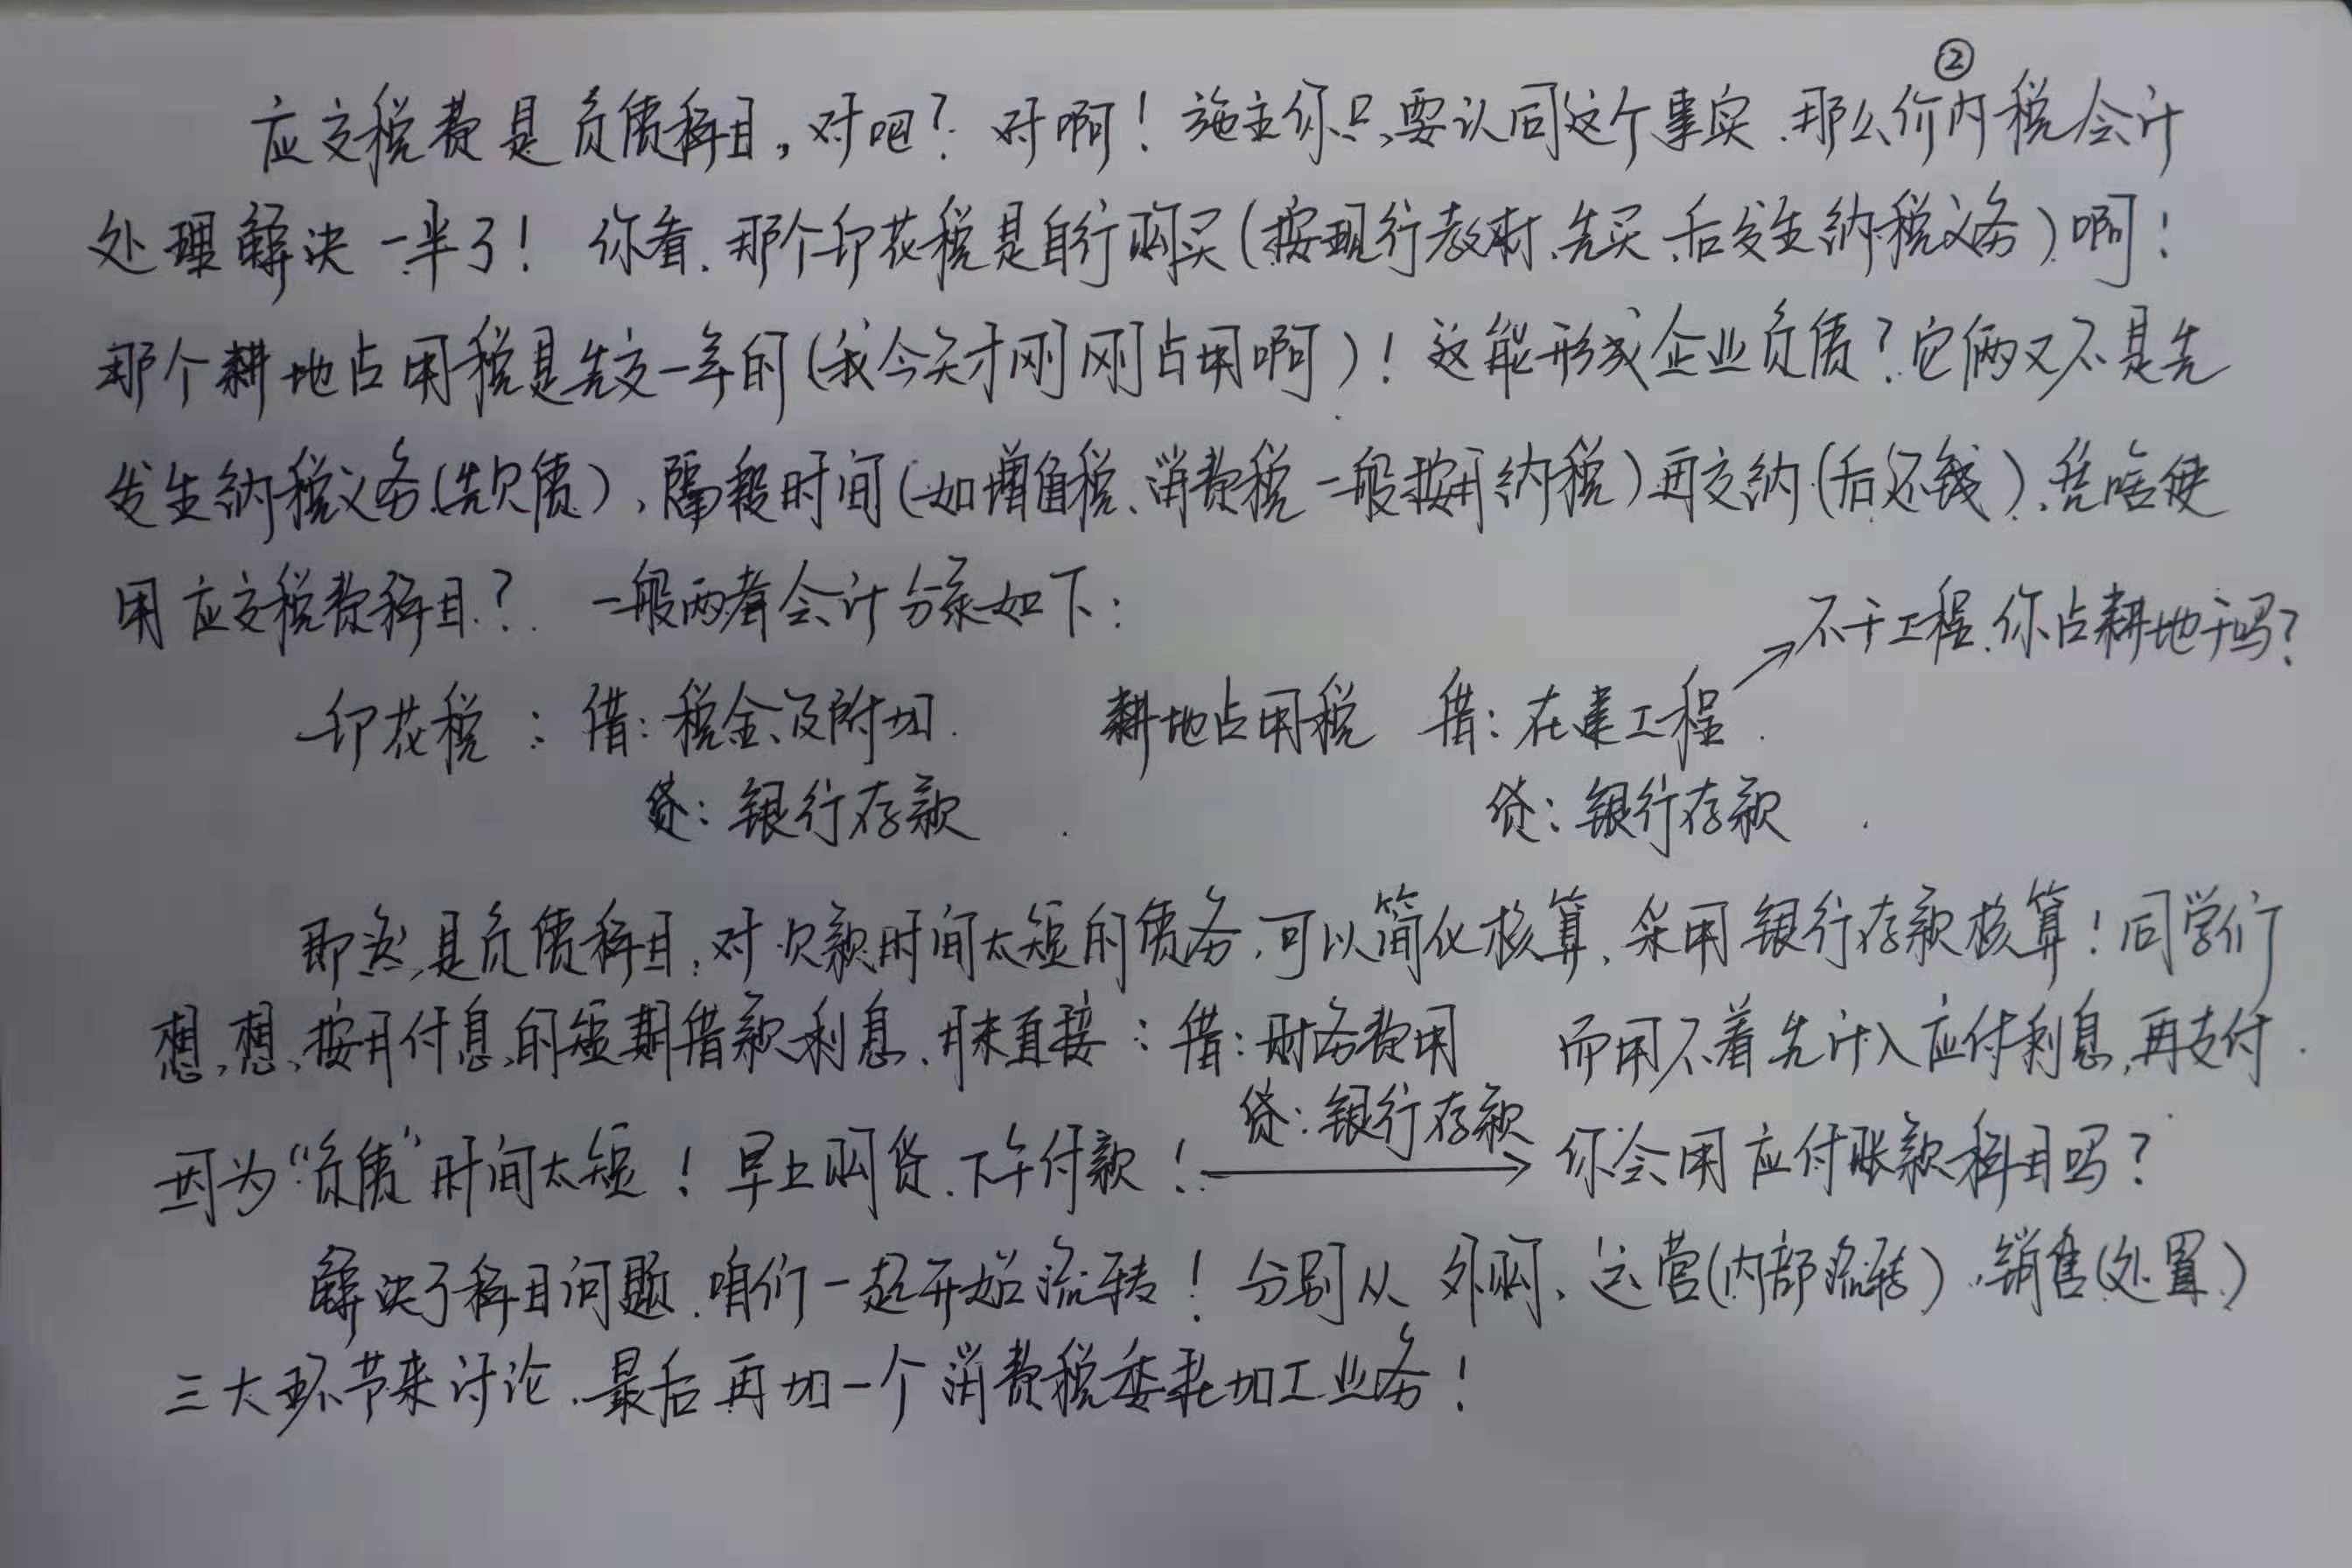 ②
应交税费是负债科目，对吧？对啊！施主你只要认同这个事实、那么价内税会计
处理解决一半了！你看、那个印花税是自行购买（按现行教材、先买、后发生纳税义务）啊！
那个耕地占用税是先交一年的（我今天才刚刚占用啊）！这能形成企业负债？它俩又不是先
发生纳税义务（先欠债）、隔段时间（如增值税、消费税一般按月纳税）再交纳（后还钱）、凭啥使
用应交税费科目？一般两者会计分录如下：
不干工程、你占耕地干吗？
印花税：借：税金及附加 耕地占用税 借：在建工程
贷：银行存款 贷：银行存款
即然是负债科目，对欠款时间太短的债务、可以简化核算、采用银行存款核算！同学们
想想、按月付息的短期借款利息、月末直接：借：财务费用 而用不着先计入应付利息，再支付.
贷：银行存款
因为“负债”时间太短！早上购货、下午付款！ 你会用应付账款科目吗？
解决了科目问题、咱们一起开始流转！分别从外购、运营（内部流转）、销售（处置）
三大环节来讨论、最后再加一个消费税委托加工业务！